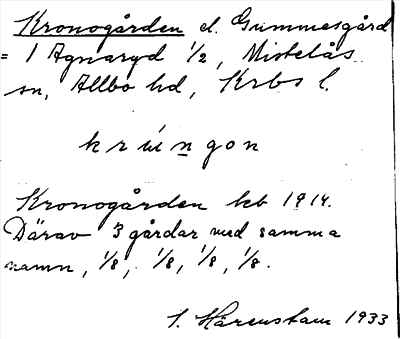 Kronogården el. Gummesgård
= 1 Agnaryd 1/2, Mistelås
sn, Allbo hd, Krbs l.
krúngon
Kronogården kb 1914.
Därav 3 gårdar med samma
namn, 1/8, 1/8, 1/8, 1/8.
S. Hårenstam 1933